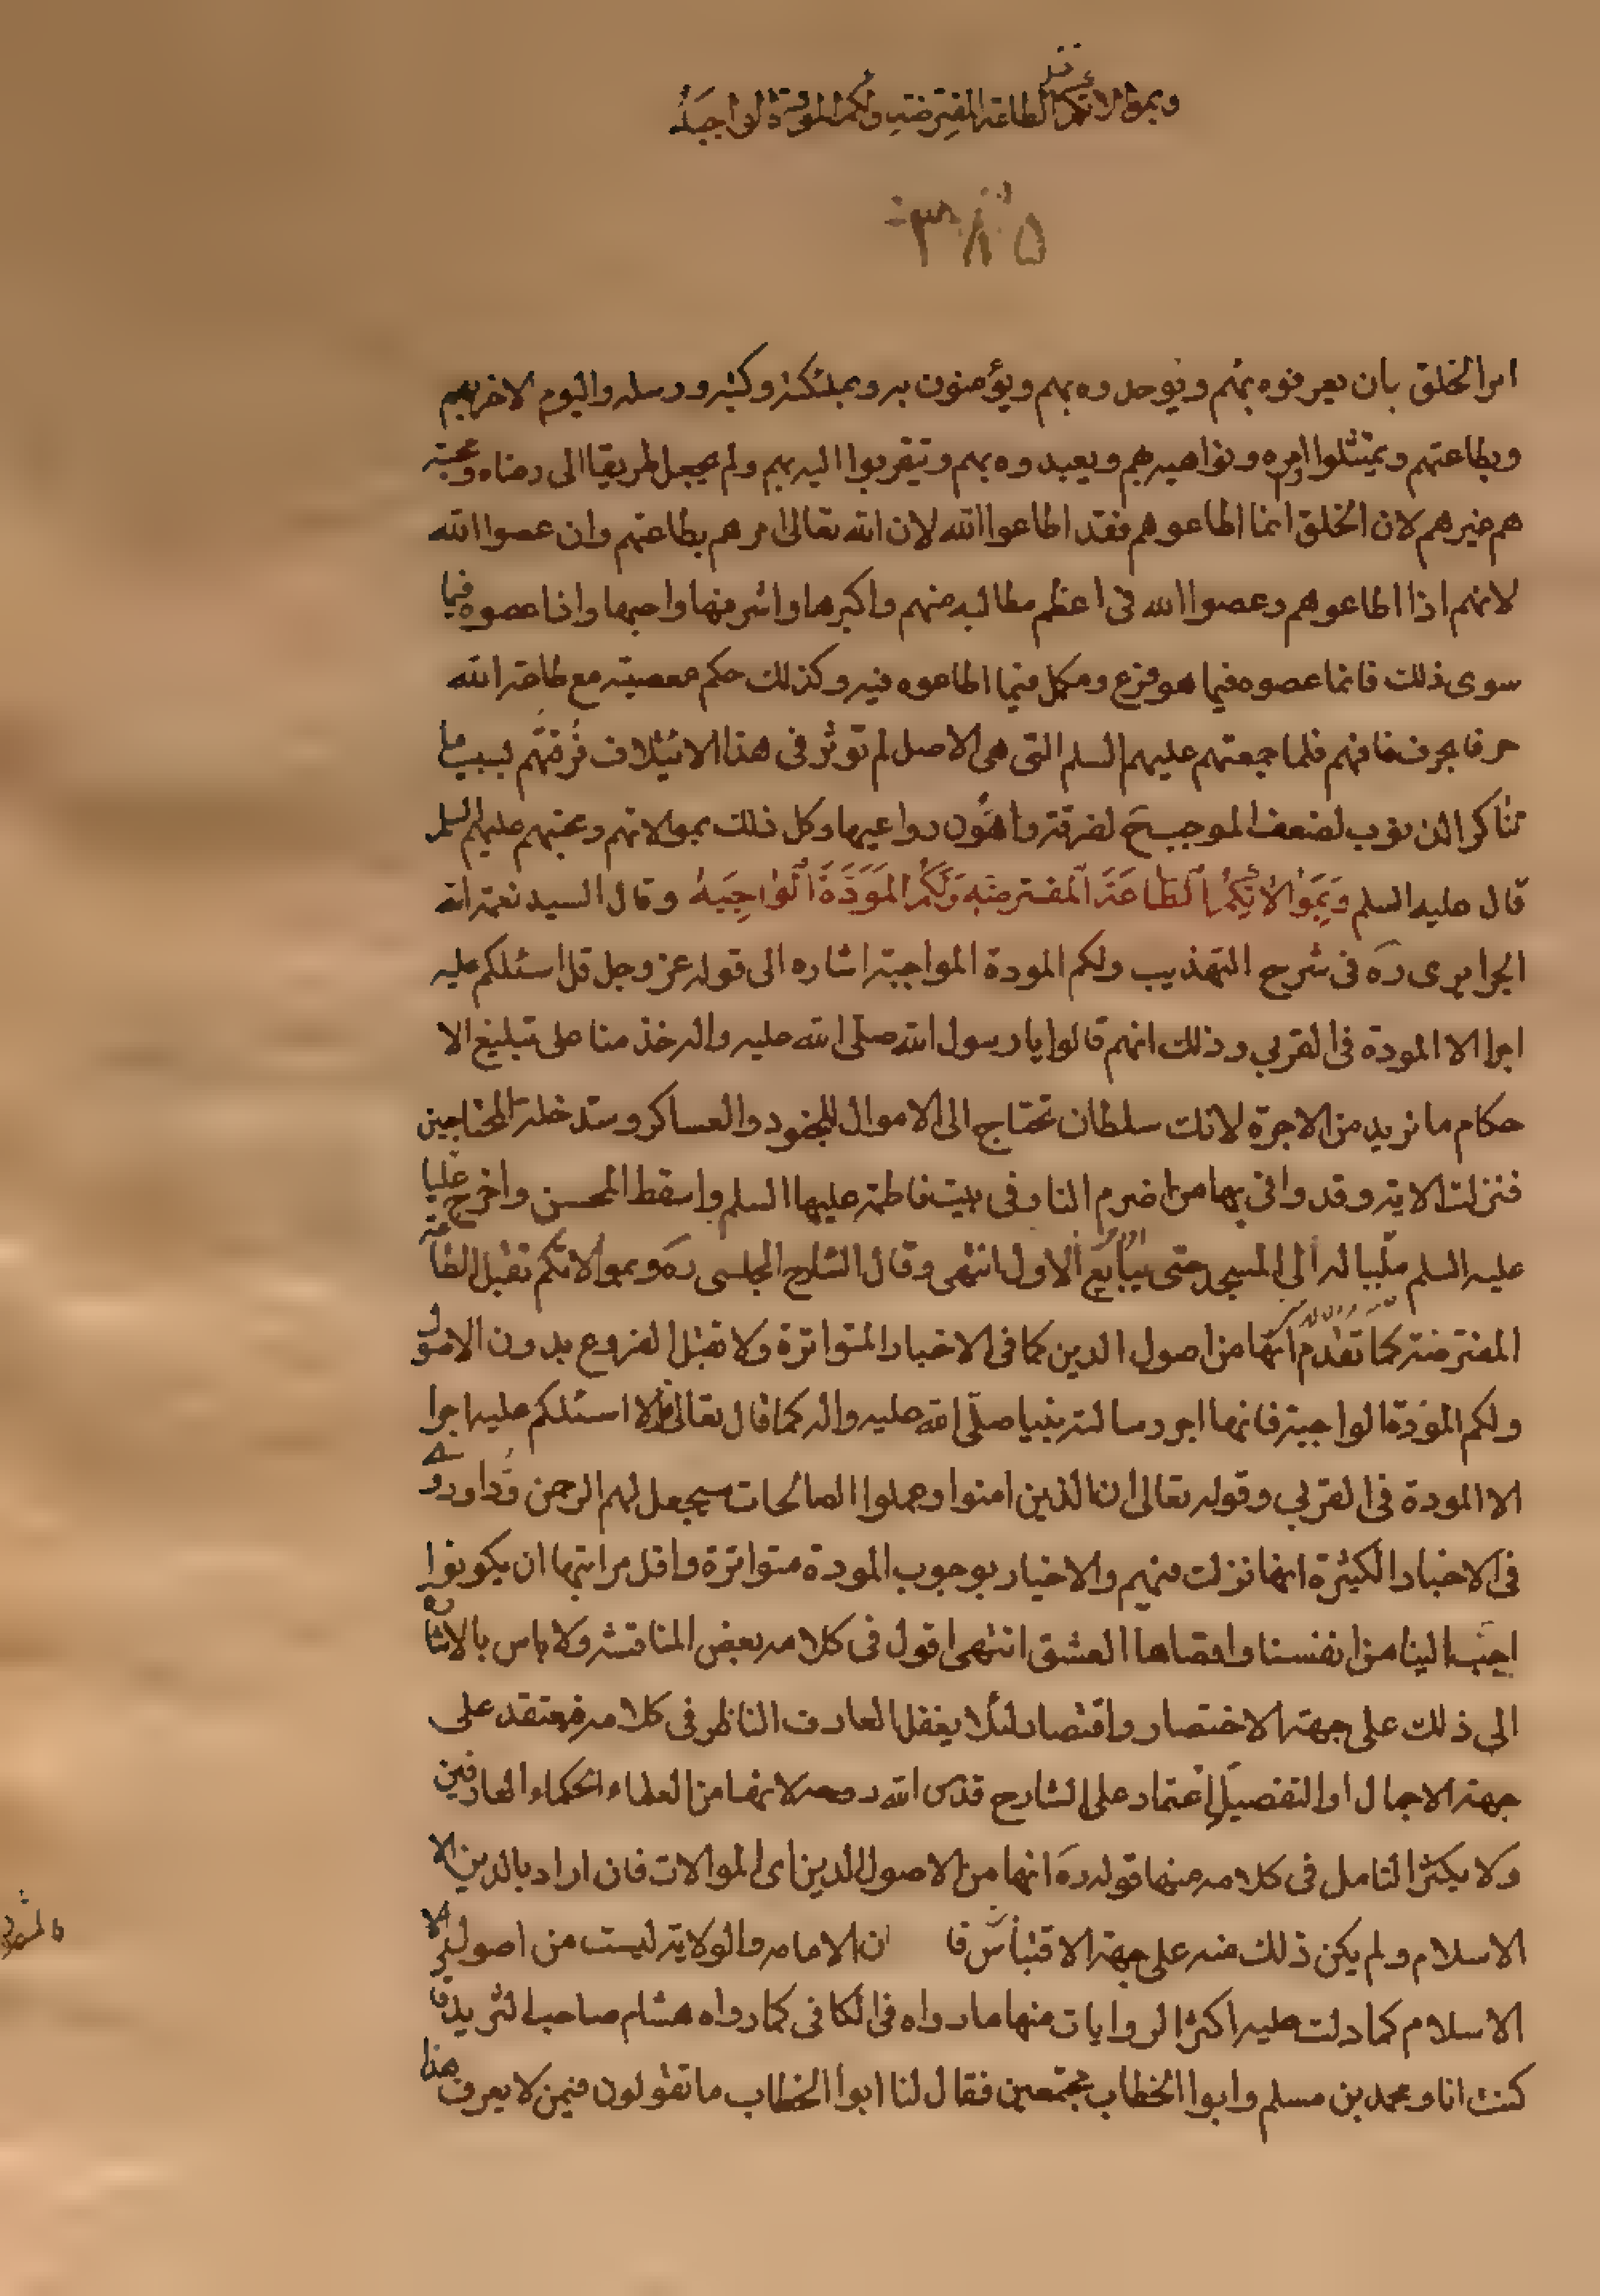 وبموالاتكم تقبل الطاعة المفترضة ولكم المودة الواجبة
٣٨٥
امر الخلق بان يعرفوه بهم ويوحدوه بهم ويؤمنون به وبملئكته وكتبه ورسله واليوم الاخر بهم
وبطاعتهم ويمتثلوا اوامره ونواهيه بهم ويعبدوه بهم ويتقربوا اليه بهم ولم يجعل طريقا الى رضاه ومحبته
هم غيرهم لان الخلق انما اطاعوهم فقد اطاعوا الله لان الله تعالى امرهم بطاعتهم وان عصوا الله
لانهم اذا اطاعوهم وعصوا الله فى اعظم مطالبه منهم واكبرها واشرفها واحبها واذا عصوه فيما
سوى ذلك فانما عصوه فيما هو فرع ومكمل فيما اطاعوه فيه وكذلك حكم معصيته مع طاعة الله
حرفا بحرف فافهم فلما جمعتهم عليهم السلم التى هى الاصل لم تؤثر فى هذا الائتلاف فرقتهم بسبب ما
تناكر الذنوب لضعف الموجب لفرقته واهون دواعيها وكل ذلك بموالاتهم ومحبتهم عليهم السلم
قال عليه السلم وَبِمَوٰالاٰتِكُمْ الطاعَةَ المفترضة وَلَكُمُ الْمَوَدَّةَ الْوٰاجِبَه وقال السيد نعمة الله
الجزايرى ره فى شرح التهذيب ولكم المودة الواجبة اشاره الى قوله عز وجل قل اسئلكم عليه
اجرا الا المودة فى القربى وذلك انهم قالوا يا رسول الله صلى الله عليه واله خذ منا على تبليغ الا
حكام ما تريد من الاجرة لانك سلطان تحتاج الى الاموال للجنود والعساكر وستدخلة المحتاجين
فنزلت الاية وقد وافى بها من اضرم النار فى بيت فاطمة عليها السلم واسقط المحسن واخرج عليا
عليه السلم ملببا له الى المسجد حتى يبايع الاول انتهى وقال الشارح المجلسى ره وبموالاتكم تقبل الطاعة
المفترضة كما تقدم انها من اصول الدين كما فى الاخبار المتواترة ولا تقبل الفروع بدون الاصول
ولكم المودة الواجبة فانها اجر رسالة نبينا صلى الله عليه واله كما قال تعالى قل لا اسئلكم عليه اجرا
الا المودة فى القربى وقوله تعالى ان الذين امنوا وعملوا الصالحات سيجعل لهم الرحمن ودا وروى
فى الاخبار الكثيرة انها نزلت فيهم والاخبار بوجوب المودة متواترة واقل مراتبها ان يكونوا
احب الينا من انفسنا واقصاها العشق انتهى اقول فى كلامه بعض المناقشه ولا باس بالاشاره
الى ذلك على جهة الاختصار واقتصار لئلا يغفل العارف الناظر فى كلامه فيعتقد على
جهة الاجمال او التفصيل اعتماد على الشارح قدس الله روحه لانه من العلماء الحكماء العارفين
ولا يكثر التامل فى كلامه منها قوله ره انها من الاصول الدين اى الموالات فان اراد بالدين الا
الاسلام ولم يكن ذلك منه على جهة الاقتباس فا ان الامامه والولاية ليست من اصول
الاسلام كما دلت عليه اكثر الروايات منها ما رواه فى الكافى كما رواه هشام صاحب البريد قا
كنت انا ومحمد بن مسلم وابوا الخطاب مجتمعين فقال لنا ابوا الخطاب ما تقولون فيمن لا يعرف هذا